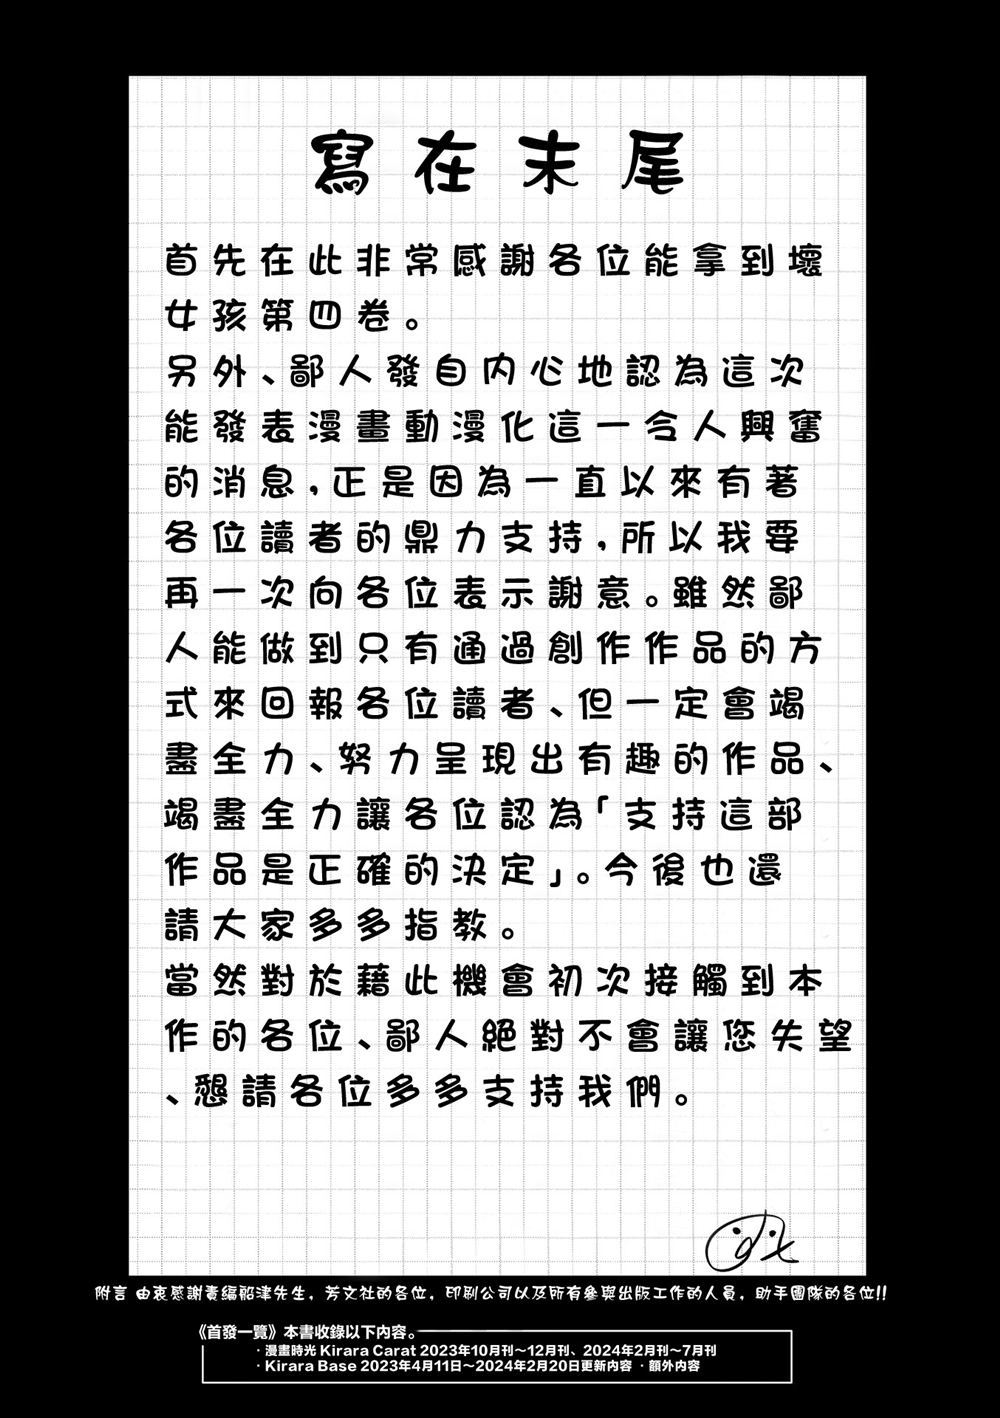 寫在末尾
首先在此非常感謝各位能拿到壞
女孩第四卷。
另外、鄙人發自内心地認為這次
能發表漫畫動漫化這一令人興奮
的消息,正是因為一直以來有著
各位讀者的鼎力支持,所以我要
再一次向各位表示謝意。雖然鄙
人能做到只有通過創作作品的方
式來回報各位讀者、但一定會竭
盡全力、努力呈現出有趣的作品、
竭盡全力讓各位認為「支持這部
作品是正確的決定」。今後也還
請大家多多指教。
當然對於藉此機會初次接觸到本
作的各位、鄙人絕對不會讓您失望
、懇請各位多多支持我們。
附言 由衷感謝責編船津先生，芳文社的各位，印刷公司以及所有參與出版工作的人員，助手團隊的各位!!
《首發一覽》本書收錄以下内容。
·漫畫時光 Kirara Carat 2023年10月刊～12月刊、2024年2月刊～7月刊
·Kirara Base 2023年4月11日～2024年2月20日更新内容 ·額外内容